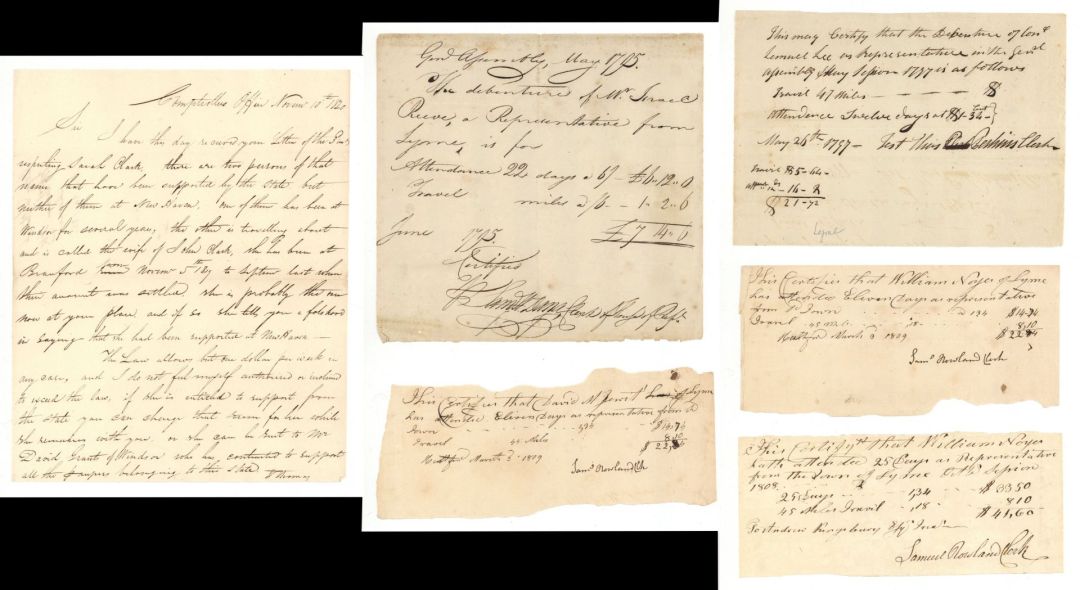 Comptrollers Office Novem 10th
Sir I have this day received your Letter of the
respecting Sarah Clark, there are two persons of that
name that have been supported by the State but
neither of them at New Haven. One of them has been at
Windsor for several years, the other is travelling about
and is called the wife of John Clark, she has been at
Branford from Novem 5th 1827 to Septem last when
their amount was settled. She is probably the one
now at your place and if so she tells you a falsehood
in saying that she had been supported at New Haven —
The Law allows but one dollar per week in
any case, and I do not feel myself authorised or inclined
to exceed the law, if she is entitled to support from
the State you can charge that sum for her while
she remains with you, or she can be sent to Mr
David Grant of Windsor who has contracted to support
all the paupers belonging to this State
Thomas
Genl Assembly, May 1795.
The debenture of Mr Israel
Reeve, a Representative from
Lyme, is for
Attendance 22 days a 6/- £6 " 12 " 0
Travel miles a /6 - - 1 - 2 " 0
June 1795. £7 14 " 0
Certifies
Clerk of House of Rep.
This Certifies that David M Jewet of Lyme
has Attended Eleven Days as representative from sd
Town 134 $14.74
Travel 45 Miles 8.10
$22.84
Hartford March 3 1809
Saml Rowland Clk
This may Certify that the Debenture of
Lemuel Lee as Representative in the Genrl
Assembly May Session 1797 is as follows
Travel 47 Miles — — — — 8
Attendance Twelve days at $1-34-
May 26th 1797 — Test Thos Perkins Clerk
Travel $5-64-
16-8
$21-72
Lyme
This Certifies that William Noyes of Lyme
has Attended Eleven Days as representative
from sd Town a 134 $14-74
Travel 45 Mils 18 8.10
Hartford March 3 1809 $22.84
Saml Rowland Clerk
This Certifys that William Noyes
hath attended 25 Days as Representative
from the Town of Lyme Octr Session
1808
25 Days 1,34 $33.50
45 Miles Travil ,18 8 10
$41,60
To Andrew Kingsbury Esqr Treas
Samuel Rowland Clerk